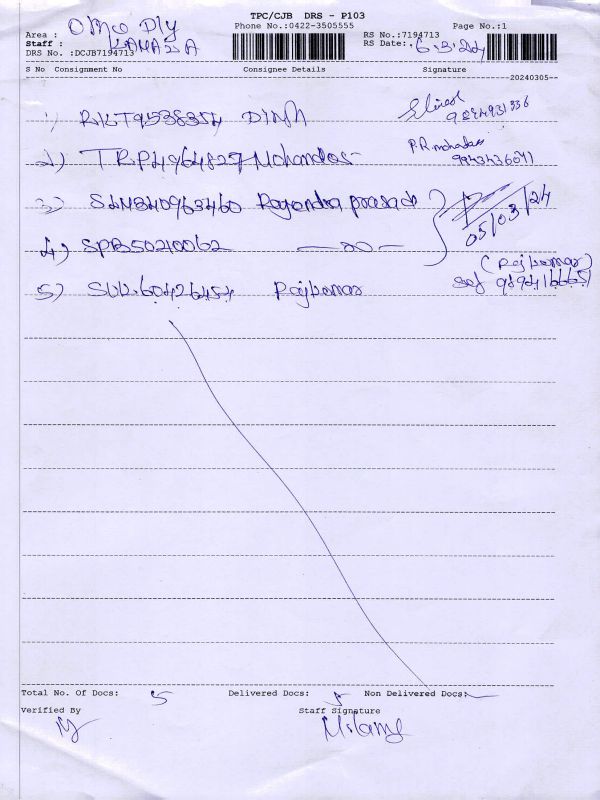 TPC/CJB DRS - P103
Phone No.:0422-3505555
Page No.:1
Area : Office Dly
Staff :
DRS No. :DCJB7194713
RS No.:7194713
RS Date: 6.3.24
S No Consignment No Consignee Details Signature
20240305--
1)
2) TRP4964827 Mohandas P.R mohandas
9943436041
3) SLM840963460 Rajendra prasad
05/03/24
4) SPB50210062 — do —
5) Rajkumar (Rajkumar)
Total No. Of Docs: 5 Delivered Docs: 5 Non Delivered Docs:
Verified By Staff Signature